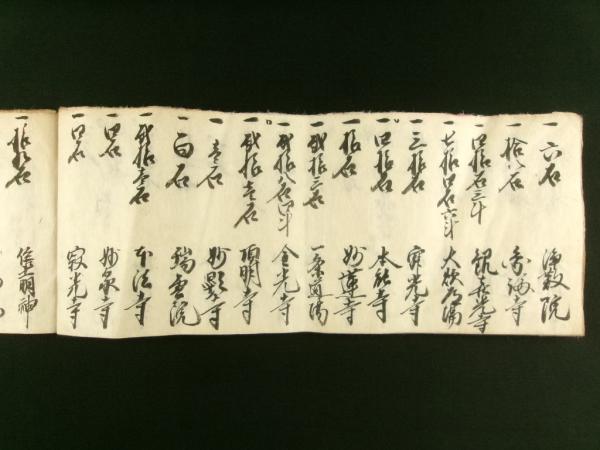 一 六石 浄教院
一 拾八石
一 四拾石三斗
一 七拾四石六斗 大炊道場
一 三拾石 寂光寺
一 四拾石 本能寺
一 拾石 妙蓮寺
一 弐拾三石 一条道場
一 弐拾八石四斗 金光寺
一 弐拾壱石 頂明寺
一 壱石 妙顕寺
一 百石 瑞雲院
一 弐拾壱石 本法寺
一 四石 妙泉寺
一 四石 寂光寺
一 明神